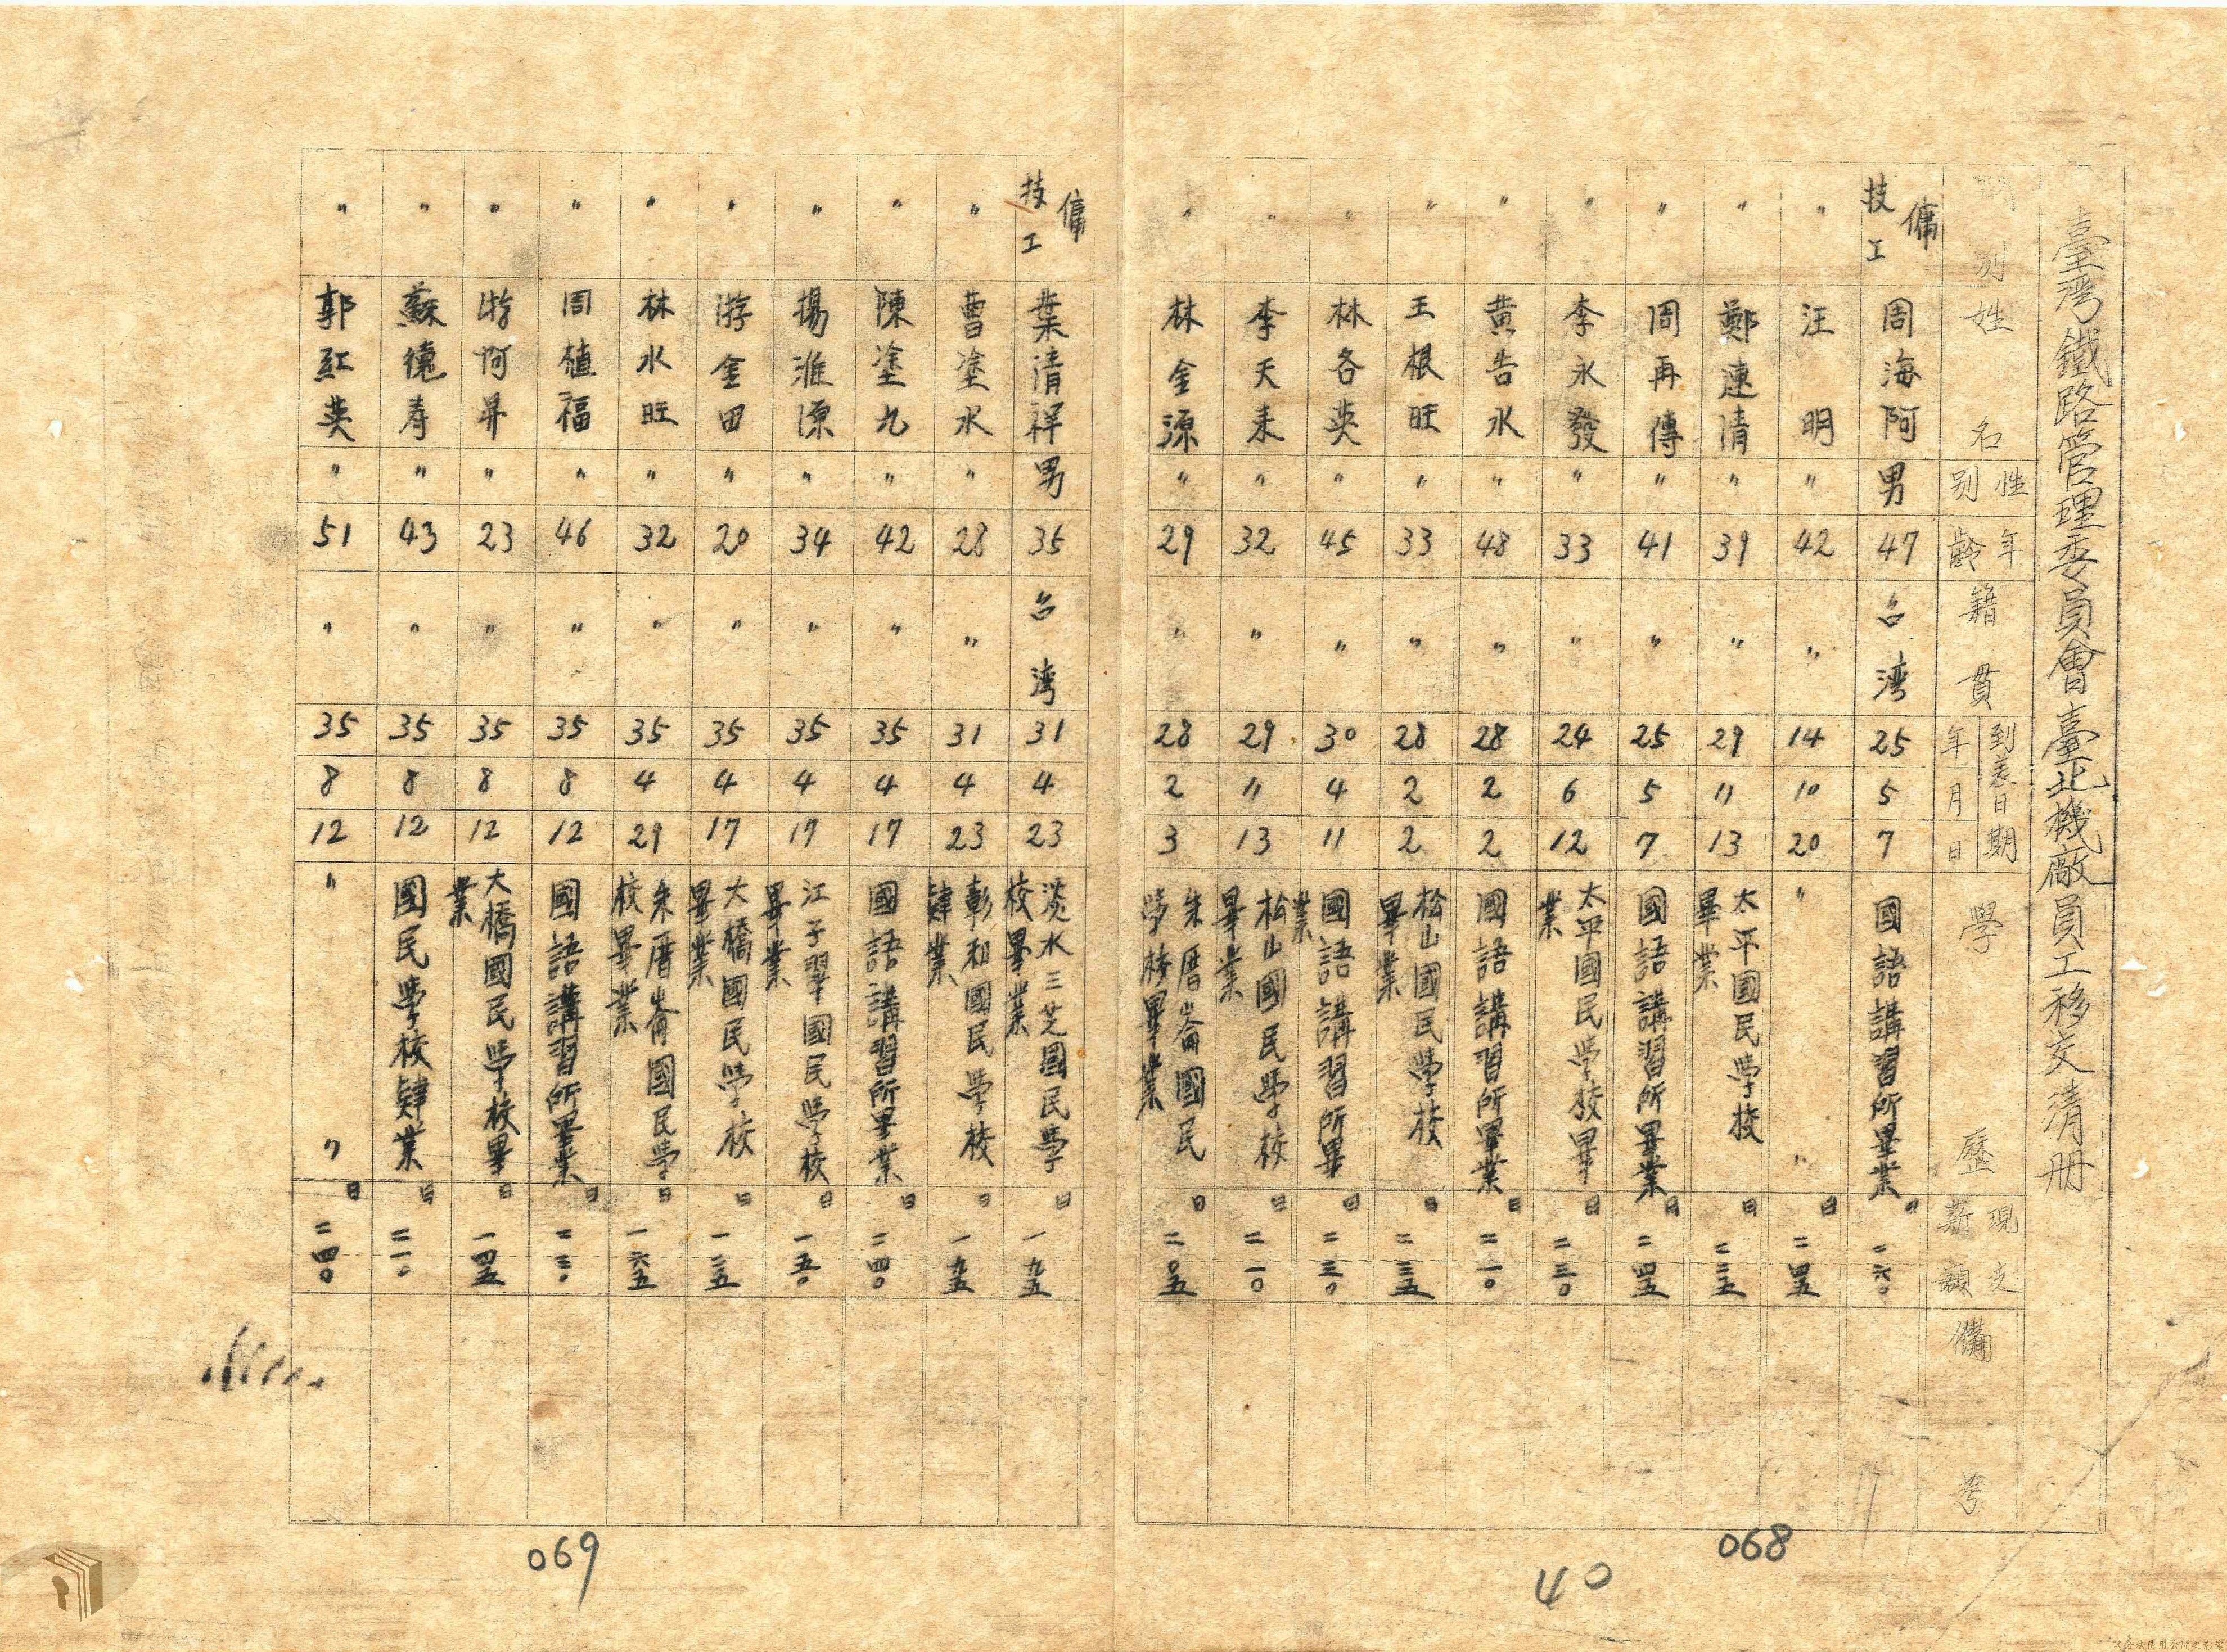 臺灣鐵路管理委員會臺北機廠員工移交清冊
職別 姓名 性別 年齡 籍貫 到差日期 年 月 日 學歷 現支薪額 備考
傭 技工 周海阿 男 47 台湾 25 5 7 國語講習所畢業 日 二六〇
〃 汪明 〃 42 〃 14 10 20 〃 〃 日 二四五
〃 鄭連清 〃 39 〃 29 11 13 太平國民學校畢業 日 二三五
〃 周再傳 〃 41 〃 25 5 7 國語講習所畢業 日 二四五
〃 李永發 〃 33 〃 24 6 12 太平國民學校畢業 日 二三〇
〃 黃告水 〃 48 〃 28 2 2 國語講習所畢業 日 二一〇
〃 王根旺 〃 33 〃 28 2 2 松山國民學校畢業 日 二三五
〃 林各英 〃 45 〃 30 4 11 國語講習所畢業 日 二三〇
〃 李天来 〃 32 〃 29 11 13 松山國民學校畢業 日 二一〇
〃 林金源 〃 29 〃 28 2 3 朱厝崙國民學校畢業 日 二〇五
068
40
傭 技工 葉清祥 男 35 台湾 31 4 23 淡水三芝國民學校畢業 日 一九五
〃 曹塗水 〃 28 〃 31 4 23 彰和國民學校肄業 日 一九五
〃 陳塗九 〃 42 〃 35 4 17 國語講習所畢業 日 二四〇
〃 楊淮源 〃 34 〃 35 4 17 江子翠國民學校畢業 日 一五〇
〃 游金田 〃 20 〃 35 4 17 大橋國民學校畢業 日 一三五
〃 林水旺 〃 32 〃 35 4 29 朱厝崙國民學校畢業 日 一六五
〃 周植福 〃 46 〃 35 8 12 國語講習所畢業 日 二三〇
〃 游阿昇 〃 23 〃 35 8 12 大橋國民學校畢業 日 一四五
〃 蘇德寿 〃 43 〃 35 8 12 國民學校肄業 日 二一〇
〃 郭紅英 〃 51 〃 35 8 12 〃 〃 日 二四〇
069